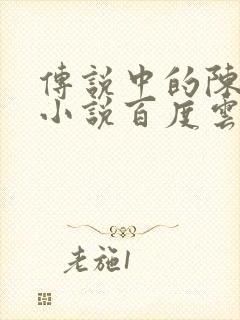 傳說中的陳
小說百度雲
老施1